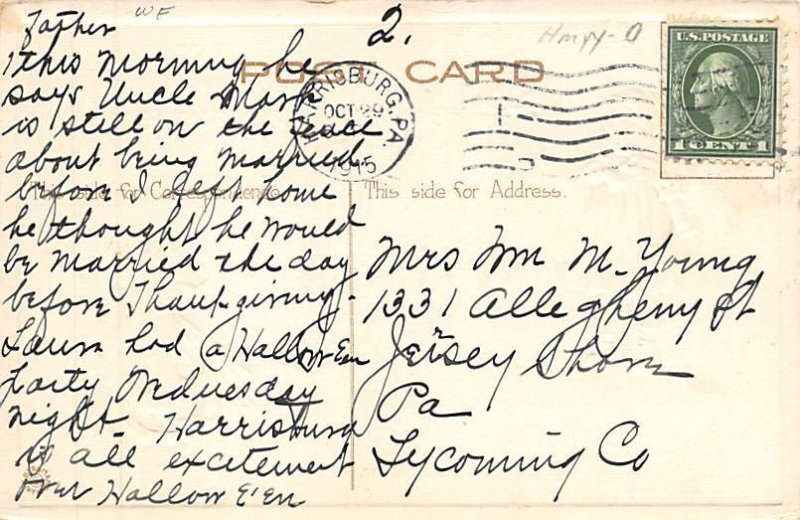 Father WF
2.
Hmpy-0
this morning he
says Uncle Mark
is still on the fence
about being married
before I left home
he thought he would
be married the day
before Thanksgiving.
Laura had a Hallow E'en
Party Wednesday
night. Harrisburg
is all excitement
over Hallow E'en
POST CARD
HARRISBURG, PA.
OCT 29
1915
U.S. POSTAGE
1 CENT 1
This side for Correspondence.
This side for Address.
Mrs Wm M. Young
1331 Allegheny St
Jersey Shore
Pa
Lycoming Co